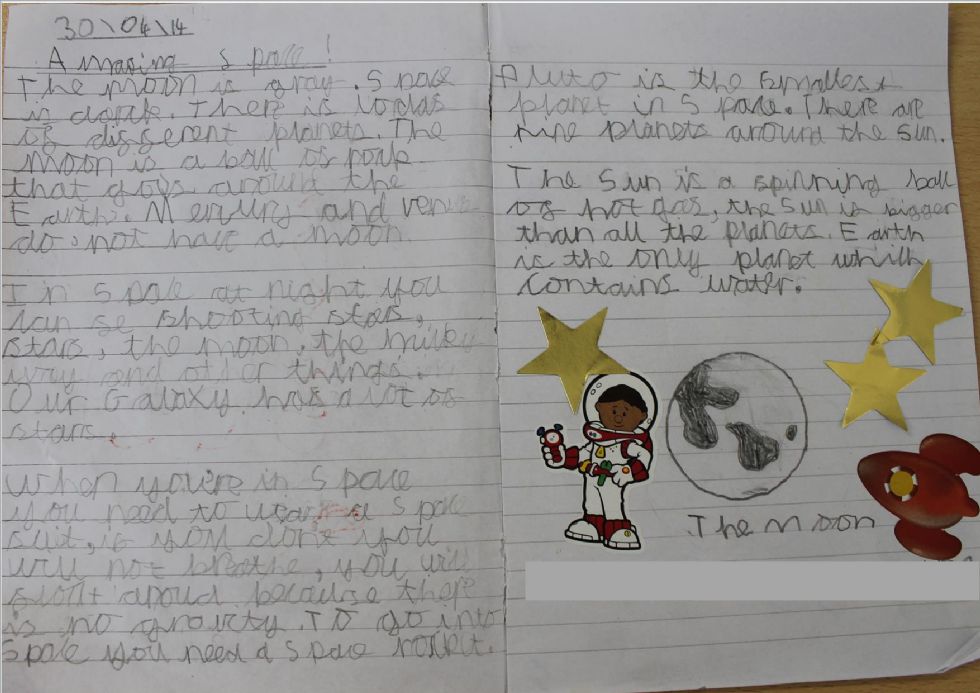 30\04\14
Amazing Space!
The moon is gray. Space
is darck. There is lodas
of different planets. The
moon is a ball of rock
that goys around the
Earth. Mercury and venus
do not have a moon.
In Space at night you
can se shooting stars,
stars, the moon, the milkey
way and other things.
Our Galaxy has a lot of
stars.
When you're in Space
you need to wear a Space
suit, if you dont you
will not breathe, you will
float aroud because there
is no gravity. To go into
Space you need a Space rocket.
Pluto is the smallest
planet in Space. There are
nine planets around the sun.
The Sun is a spinning ball
of hot gas, the Sun is bigger
than all the planets. Earth
is the only planet which
contains water.
The moon